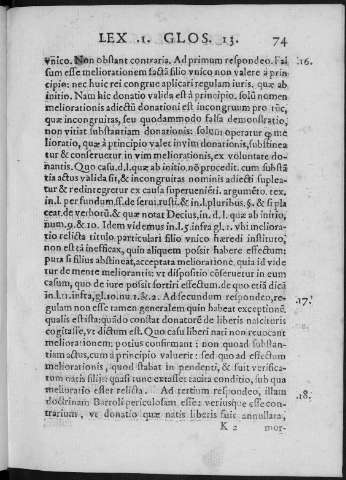 LEX .1. GLOS. 13. 74
vnico. Non obstant contraria. Ad primum respondeo. Fal 16.
sum esse meliorationem factā filio vnico non valere à prin
cipio: nec huic rei congrue aplicari regulam iuris. quæ ab
initio. Nam hic donatio valida est à principio. solū nomen
meliorationis adiectū donationi est incongruum pro tūc,
quæ incongruitas, seu quodammodo falsa demonstratio,
non vitiat substantiam donationis: solum operatur q me
lioratio, quæ à principio valet in vim donationis, substinea
tur & conseruetur in vim meliorationis, ex voluntate do-
nantis. Quo casu. d.l. quæ ab initio. nō procedit. cum substā
tia actus valida sit, & incongruitas nominis adiecti suplea-
tur & redintegretur ex causa superueniēti. argumēto. tex.
in.l. per fundum. ff. de serui. rusti. & in.l. pluribus. §. & si pla
ceat. de verborū. & quæ notat Decius, in. d. l. quæ ab initio,
num. 9. & 10. Idem videmus in.l.5. infra gl. 1. vbi meliora-
tio relicta titulo particulari filio vnico hæredi instituto,
non est tā inefficax, quin aliquem possit habere effectum:
puta si filius abstineat, acceptata melioratione. quia id vide
tur de mente meliorantis: vt dispositio cōseruetur in eum
casum, quo de iure possit sortiri effectum. de quo etiā dicā
in.l.11. infra, gl. 10. nu. 1. & 2. Ad secundum respondeo, re- 17.
gulam non esse tamen generalem quin habeat exceptionē.
qualis est ista: quādo constat donatorē de liberis nascituris
cogitasse, vt dictum est. Quo casu liberi nati non reuocant
meliorationem: potius confirmant; non quoad substan-
tiam actus, cum à principio valuerit: sed quo ad effectum
meliorationis, quod stabat in pendenti, & fuit verifica-
tum natis filijs: quasi tunc extasset tacita conditio, sub qua
melioratio esset relicta. Ad tertium respondeo, illam 18.
doctrinam Bartoli periculosam esse: veriusque esse con-
trarium, vt donatio quæ natis liberis fuit annullata,
K 2 mor-